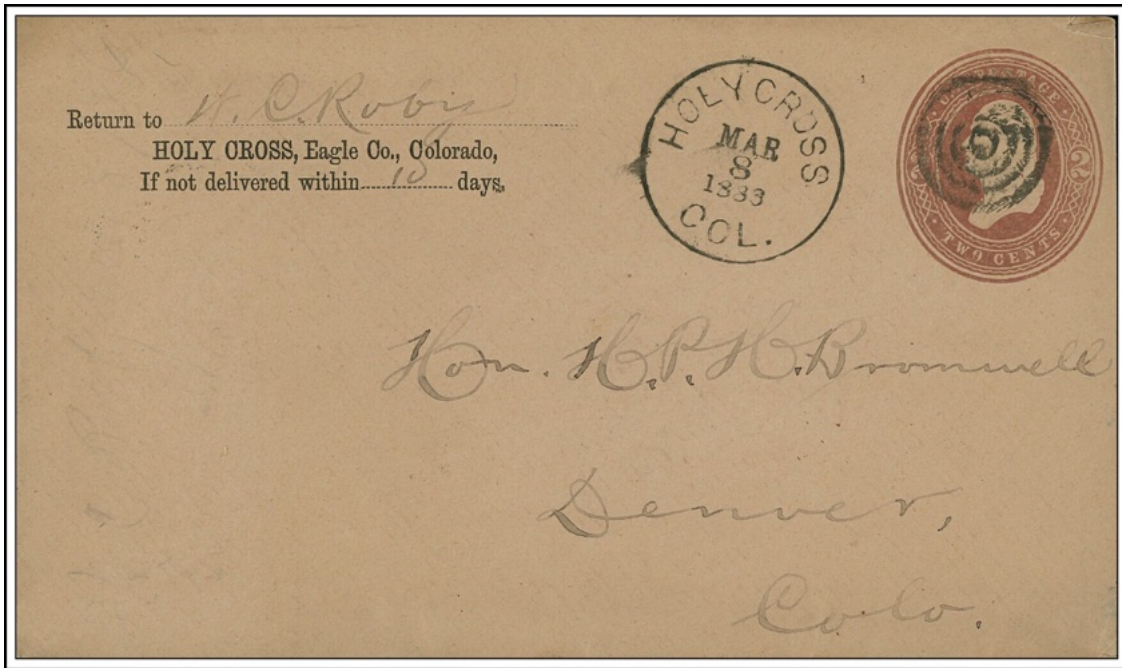 Return to H. C. Roby
HOLY CROSS, Eagle Co., Colorado,
If not delivered within 10 days.
HOLY CROSS
MAR
8
1883
COL.
2
TWO CENTS
Hon. H.P.H. Bromwell
Denver,
Colo.